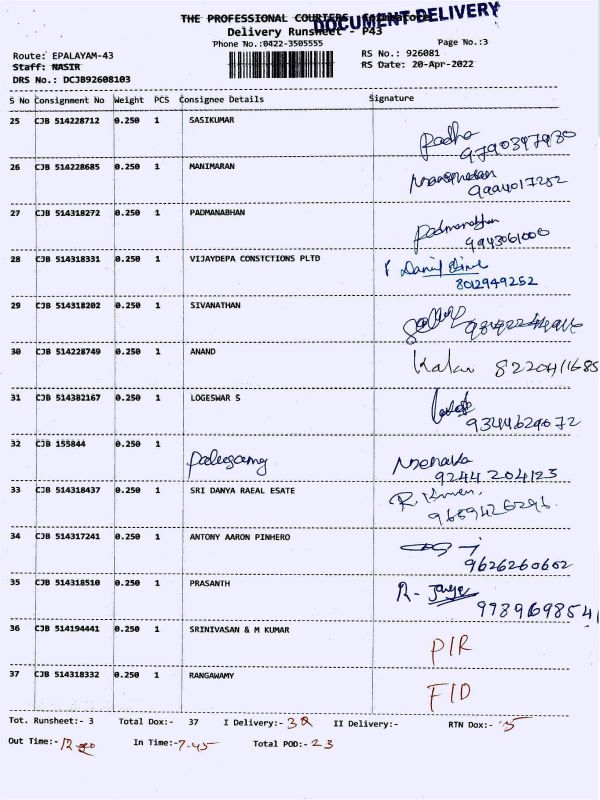 THE PROFESSIONAL COURIERS, Coimbatore
DOCUMENT DELIVERY
Delivery Runsheet - P43
Phone No.:0422-3505555 Page No.:3
Route: EPALAYAM-43 RS No.: 926081
Staff: NASIR RS Date: 20-Apr-2022
DRS No.: DCJB92608103
S No Consignment No Weight PCS Consignee Details Signature
25 CJB 514228712 0.250 1 SASIKUMAR Radha
9790397930
26 CJB 514228685 0.250 1 MANIMARAN
9994017252
27 CJB 514318272 0.250 1 PADMANABHAN Padmanabhan
9943061000
28 CJB 514318331 0.250 1 VIJAYDEPA CONSTCTIONS PLTD
8012949252
29 CJB 514318202 0.250 1 SIVANATHAN
30 CJB 514228749 0.250 1 ANAND Kalai 8220411685
31 CJB 514382167 0.250 1 LOGESWAR S
9344629072
32 CJB 155844 0.250 1 Menaka
9244204123
33 CJB 514318437 0.250 1 SRI DANYA RAEAL ESATE R. Kumar,
9689426296
34 CJB 514317241 0.250 1 ANTONY AARON PINHERO
9626260602
35 CJB 514318510 0.250 1 PRASANTH R-
9789698541
36 CJB 514194441 0.250 1 SRINIVASAN & M KUMAR PIR
37 CJB 514318332 0.250 1 RANGAWAMY FID
Tot. Runsheet:- 3 Total Dox:- 37 I Delivery:- II Delivery:- RTN Dox:- 5
Out Time:- In Time:- 7.45 Total POD:- 23